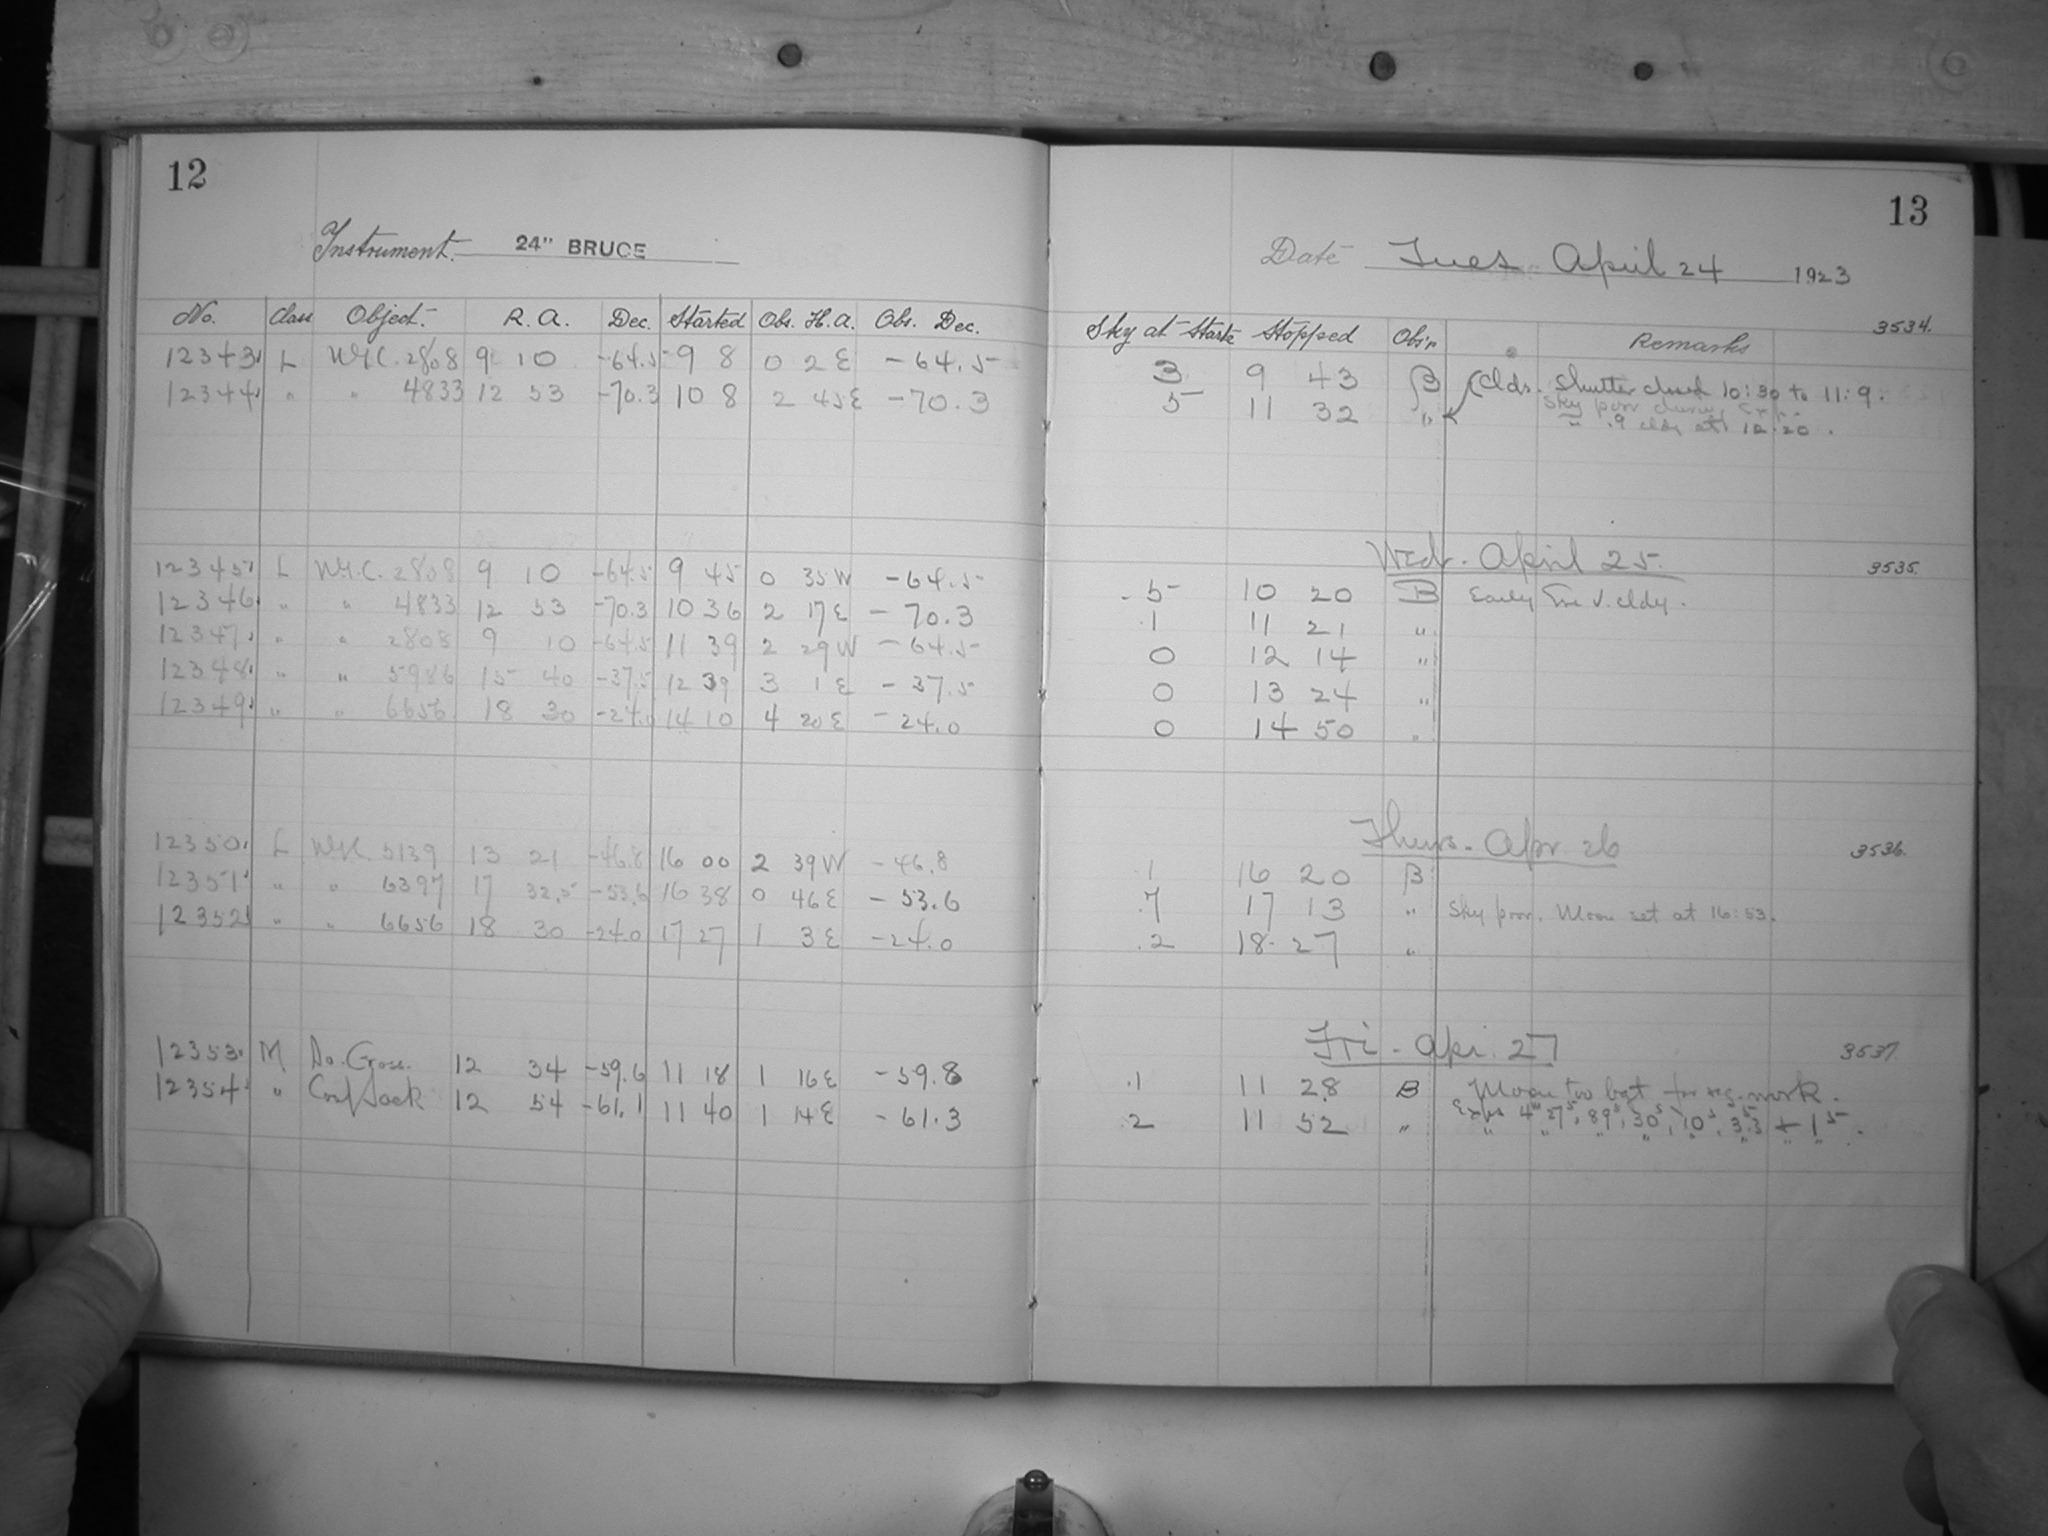 12
Instrument. 24" BRUCE
No. Class Object. R. A. Dec. Started Obs. H. A. Obs. Dec.
12343 L N.G.C. 2808 9 10 -64.5 9 8 0 2 E -64.5
12344 " " 4833 12 53 -70.3 10 8 2 45 E -70.3
12345 L N.G.C. 2808 9 10 -64.5 9 45 0 35 W -64.5
12346 " " 4833 12 53 -70.3 10 36 2 17 E -70.3
12347 " " 2808 9 10 -64.5 11 39 2 29 W -64.5
12348 " " 5986 15 40 -37.5 12 39 3 1 E -37.5
12349 " " 6656 18 30 -24.0 14 10 4 20 E -24.0
12350 L N.G.C. 5139 13 21 -46.8 16 00 2 39 W -46.8
12351 " " 6397 17 32.5 -53.6 16 38 0 46 E -53.6
12352 " " 6656 18 30 -24.0 17 27 1 3 E -24.0
12353 M So. Cross. 12 34 -59.6 11 18 1 16 E -59.8
12354 " Coalsack 12 54 -61.1 11 40 1 14 E -61.3
13
Date Tues April 24 1923
Sky at Start Stopped Obs'r Remarks 3534.
3 9 43 B Clds. Shutter closed 10:30 to 11:9.
5 11 32 " Sky poor during Exp.
" .9 cldy at 12.20.
Wed. April 25. 3535.
.5 10 20 B Early Eve v. cldy.
.1 11 21 "
0 12 14 "
0 13 24 "
0 14 50 "
Thurs. Apr. 26 3536.
.1 16 20 B
.7 17 13 " Sky poor. Moon set at 16:53.
.2 18 27 "
Fri. Apr. 27 3537.
.1 11 28 B Moon too bgt for reg. work.
Exps 4m 27s, 89s, 30s, 10s, 3.3s + 1s.
.2 11 52 " " " " " " " " "